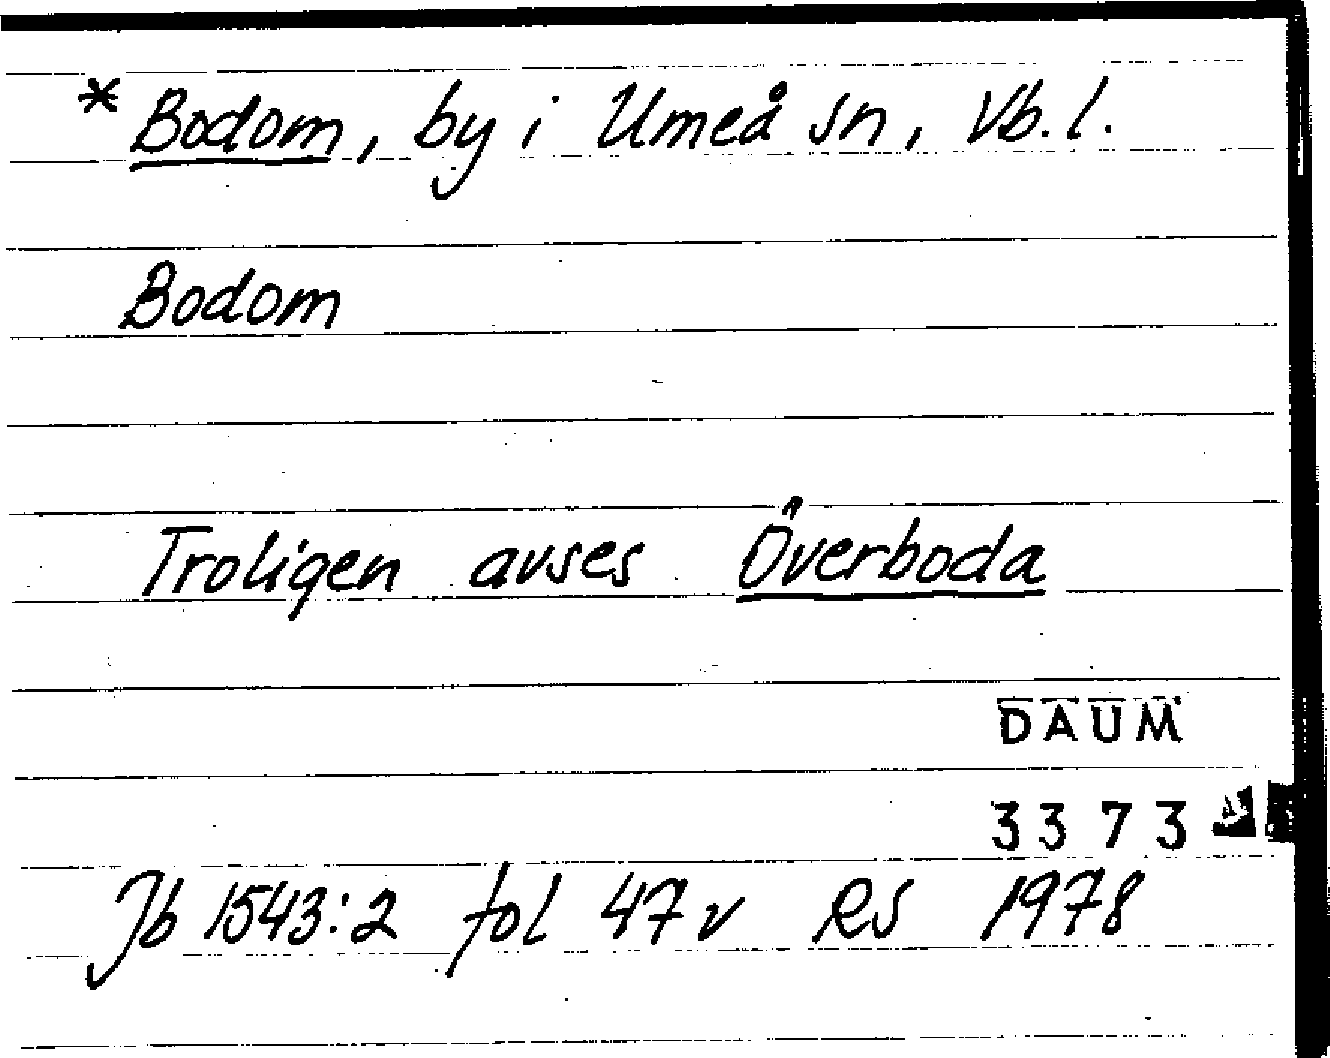 * Bodom, by i Umeå sn, Vb. l.
Bodom
Troligen avses Överboda
DAUM
3373
Jb 1543:2 fol 47v RS 1978